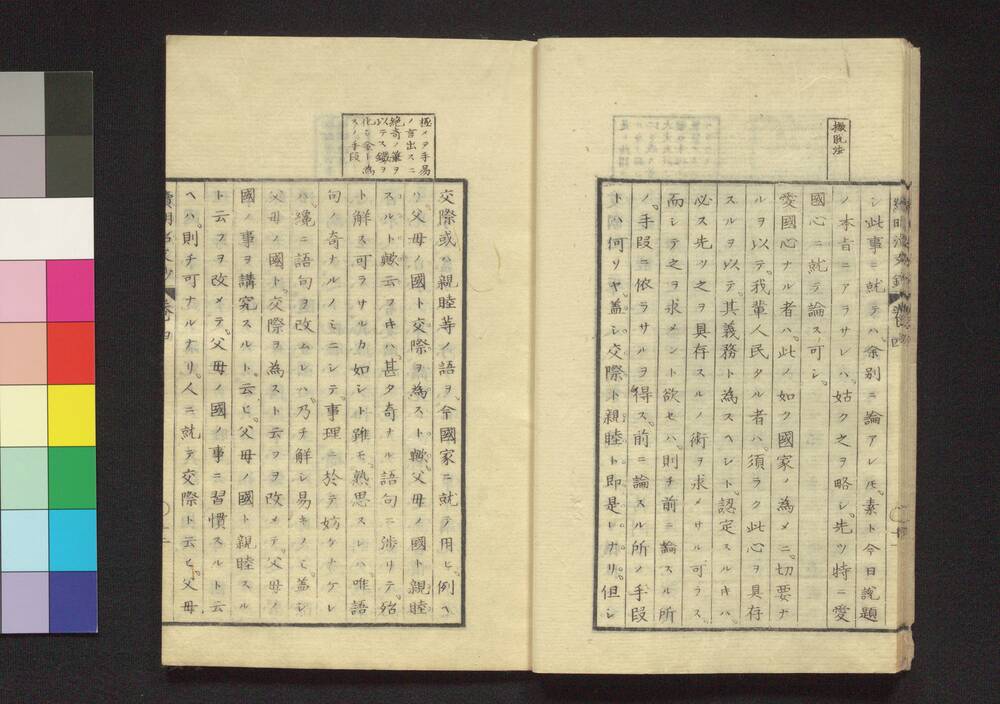 撒脫法
シ此事ニ就テハ余別ニ論アレ𪜈素ト今日説題
ノ本旨ニアラサレハ姑ク之ヲ略シ先ツ特ニ愛
國心ニ就テ論ス可シ
愛國心ナル者ハ此ノ如ク國家ノ為メニ切要ナ
ルヲ以テ我輩人民タル者ハ須ラク此心ヲ具存
スルヲ以テ其義務ト為スヘシト認定スルキハ
必ス先ツ之ヲ具存スルノ術ヲ求メサル可ラス
而シテ之ヲ求メント欲セハ則チ前ニ論スル所
ノ手段ニ依ラサルヲ得ス前ニ論スル所ノ手段
トハ何リヤ蓋シ交際ト親睦ト即是レナリ但シ
極メヲ手易
ノ言出スニ
絶奇ノ筆ヲ
以テス鐵ヲ
化シ金ト為
スノ手段
交際或ハ親睦等ノ語ヲ今國家ニ就テ用ヒ例ヘ
ハ父母ノ國ト交際ヲ為スト歟父母ノ國ト親睦
スルト歟云フキハ甚タ奇ナル語句ニ渉リテ殆
ト解ス可ラサルカ如シト雖モ熟思スレハ唯語
句ノ奇ナルノミニシテ事理ニ於テ妨ケナケレ
ハ縄ニ語句ヲ改ムレハ乃チ解シ易キノミ蓋シ
父母ノ國ト交際ヲ為スト云フヲ改メテ父母ノ
國ノ事ヲ講究スルト云ヒ父母ノ國ト親睦スル
ト云フヲ改メテ父母ノ國ノ事ニ習慣スルト云
ヘハ則チ可ナルナリ人ニ就テ交際ト云ヒ父母